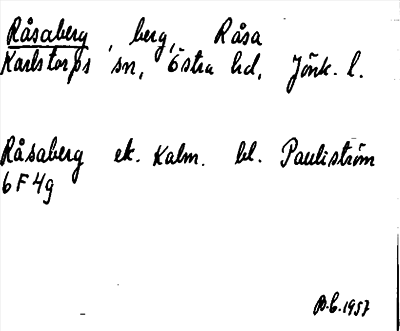 Råsaberg, berg, Råsa
Karlstorps sn, Östra hd, Jönk. l.
Råsaberg ek. Kalm. bl. Pauliström
6F4g
B.E.1957